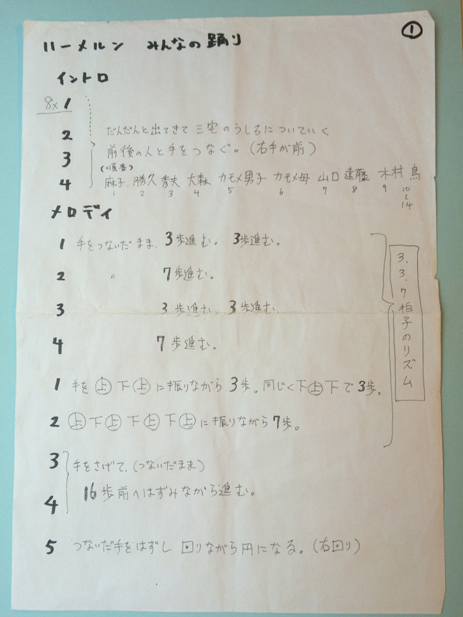 ①
ハーメルン みんなの踊り
イントロ
8x 1
2 だんだんと出てきて 三宅のうしろについていく
3 前後の人と手をつなぐ。(右手が前)
(順番)
4 麻子 勝久 秀夫 大森 カモメ男子 カモメ母 山口 遠藤 木村 島
1 2 3 4 5 6 7 8 9 10
2
14
メロディ
1 手をつないだまま、3歩進む。 3歩進む。
2 〃 7歩進む。
3 3歩進む、3歩進む.
4 7歩進む。
1 手を 上 下 上 に振りながら 3歩。同じく下上下で3歩。
2 上 下 上 下 上 下 上 に振りながら 7歩。
3 手をさげて、(つないだまま)
4 16歩前へはずみながら進む。
5 つないだ手をはずし 回りながら円になる。(右回り)
3.3.7拍子のリズム